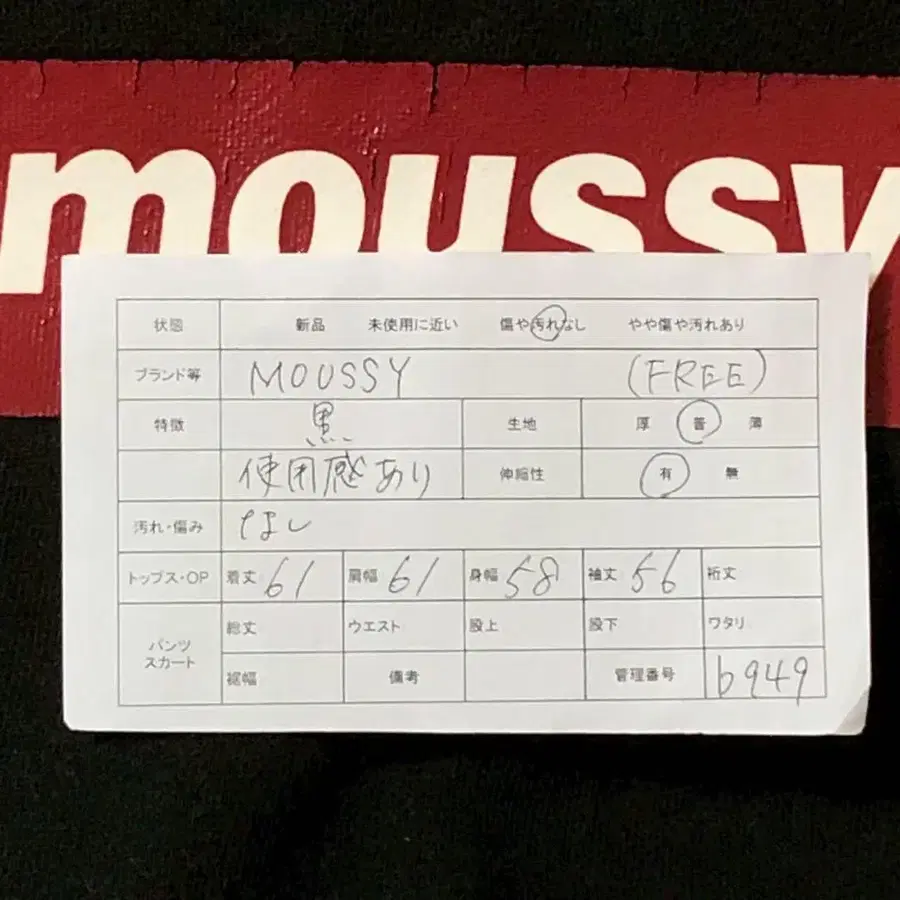 moussy
状態 新品 未使用に近い 傷や汚れなし やや傷や汚れあり
ブランド等 MOUSSY (FREE)
特徴 黒 生地 厚 普 薄
使用感あり 伸縮性 有 無
汚れ・傷み なし
トップス・OP 着丈 61 肩幅 61 身幅 58 袖丈 56 裄丈
パンツ スカート 総丈 ウエスト 股上 股下 ワタリ
裾幅 備考 管理番号 b949